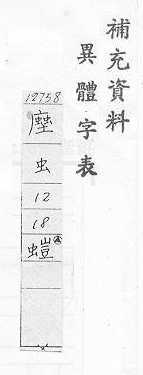 補充資料
異體字表
12758
虫
12
18
螘